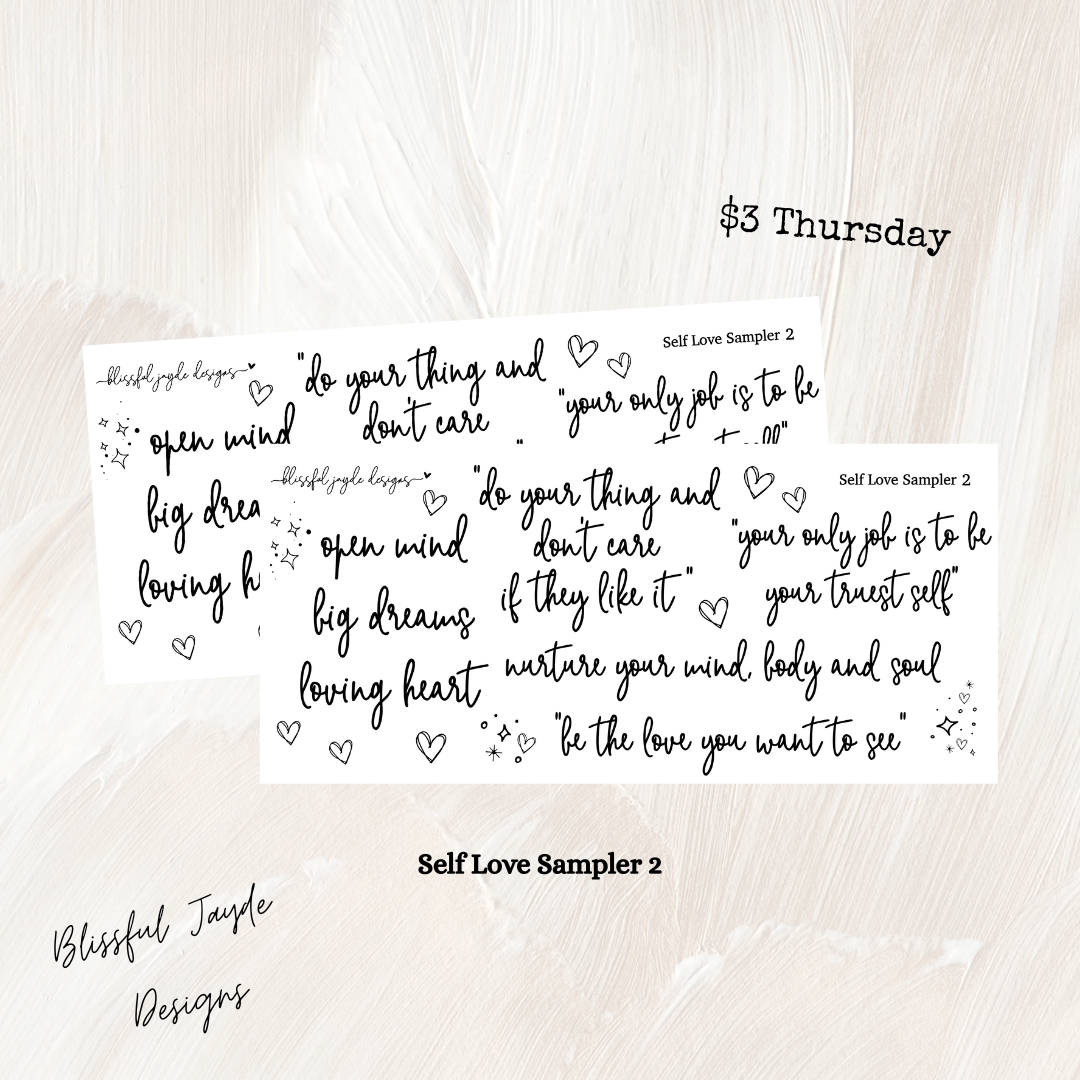 $3 Thursday
blissful jayde designs
Self Love Sampler 2
"do your thing and
don't care
"your only job is to be
open mind
big drea
loving h
blissful jayde designs
Self Love Sampler 2
"do your thing and
don't care
if they like it"
"your only job is to be
your truest self"
open mind
big dreams
loving heart
nurture your mind, body and soul
"be the love you want to see"
Self Love Sampler 2
Blissful Jayde
Designs